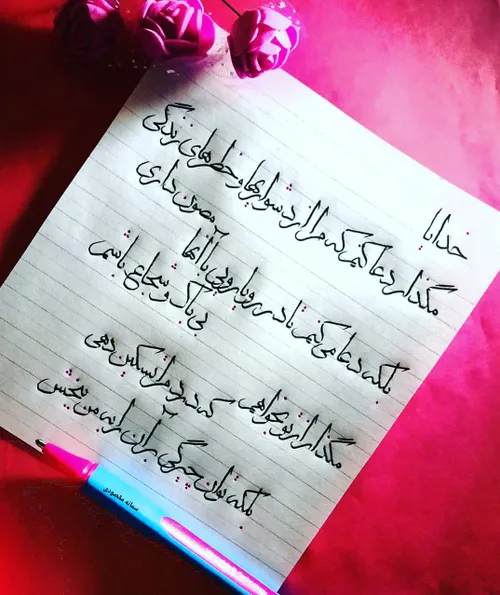 خدایا
مگذار دعا کنم که مرا از دشواریها و خطرهای زندگی
مصون داری
بلکه دعا می‌کنم تا در رویارویی با آنها
بی‌باک و شجاع باشم
مگذار از تو بخواهم
که درد مرا تسکین دهی
بلکه توان چیرگی بر آن را به من ببخش
سمانه مقصودی